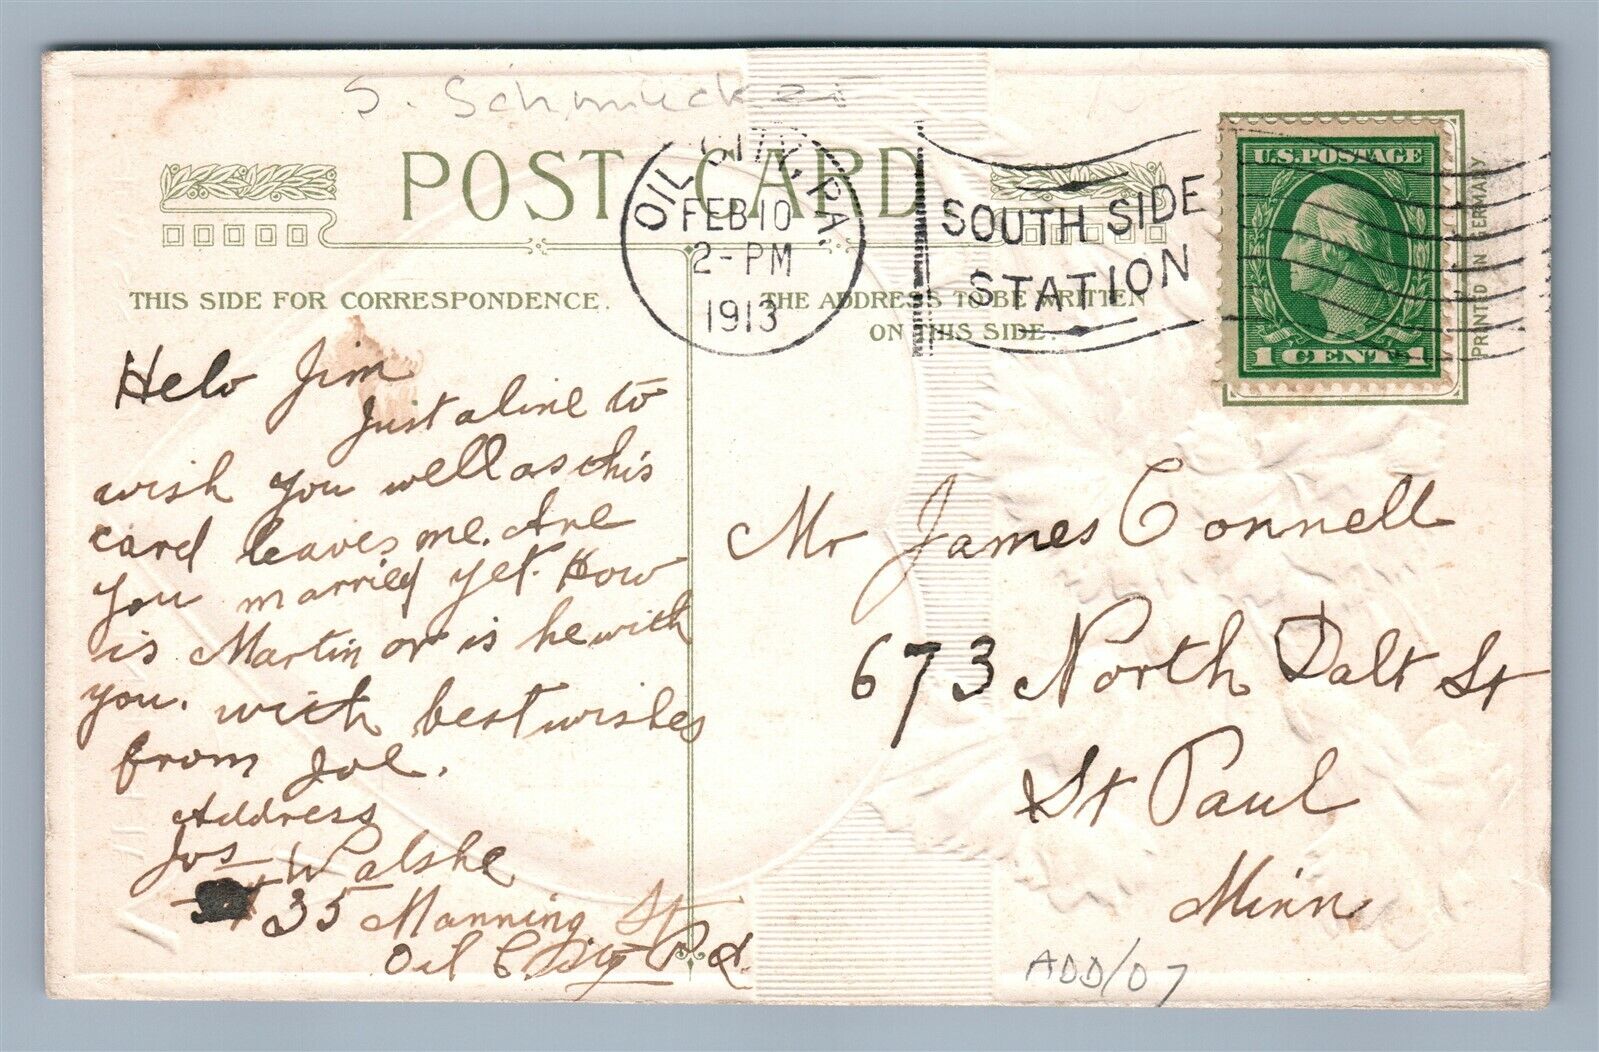 S. Schmucker
POST CARD
OIL CITY, PA.
FEB 10
2-PM
1913
SOUTH SIDE
STATION
U.S. POSTAGE
1 CENT 1
PRINTED IN GERMANY
THIS SIDE FOR CORRESPONDENCE.
THE ADDRESS TO BE WRITTEN
ON THIS SIDE.
Helo Jim
Just a line to
wish you well as this
card leaves me. Are
you married yet. How
is Martin or is he with
you. with best wishes
from Joe.
Address
Jos Walshe
35 Manning St
Oil City Pa
Mr James Connell
673 North Dalt St
St Paul
Minn
ADD/07